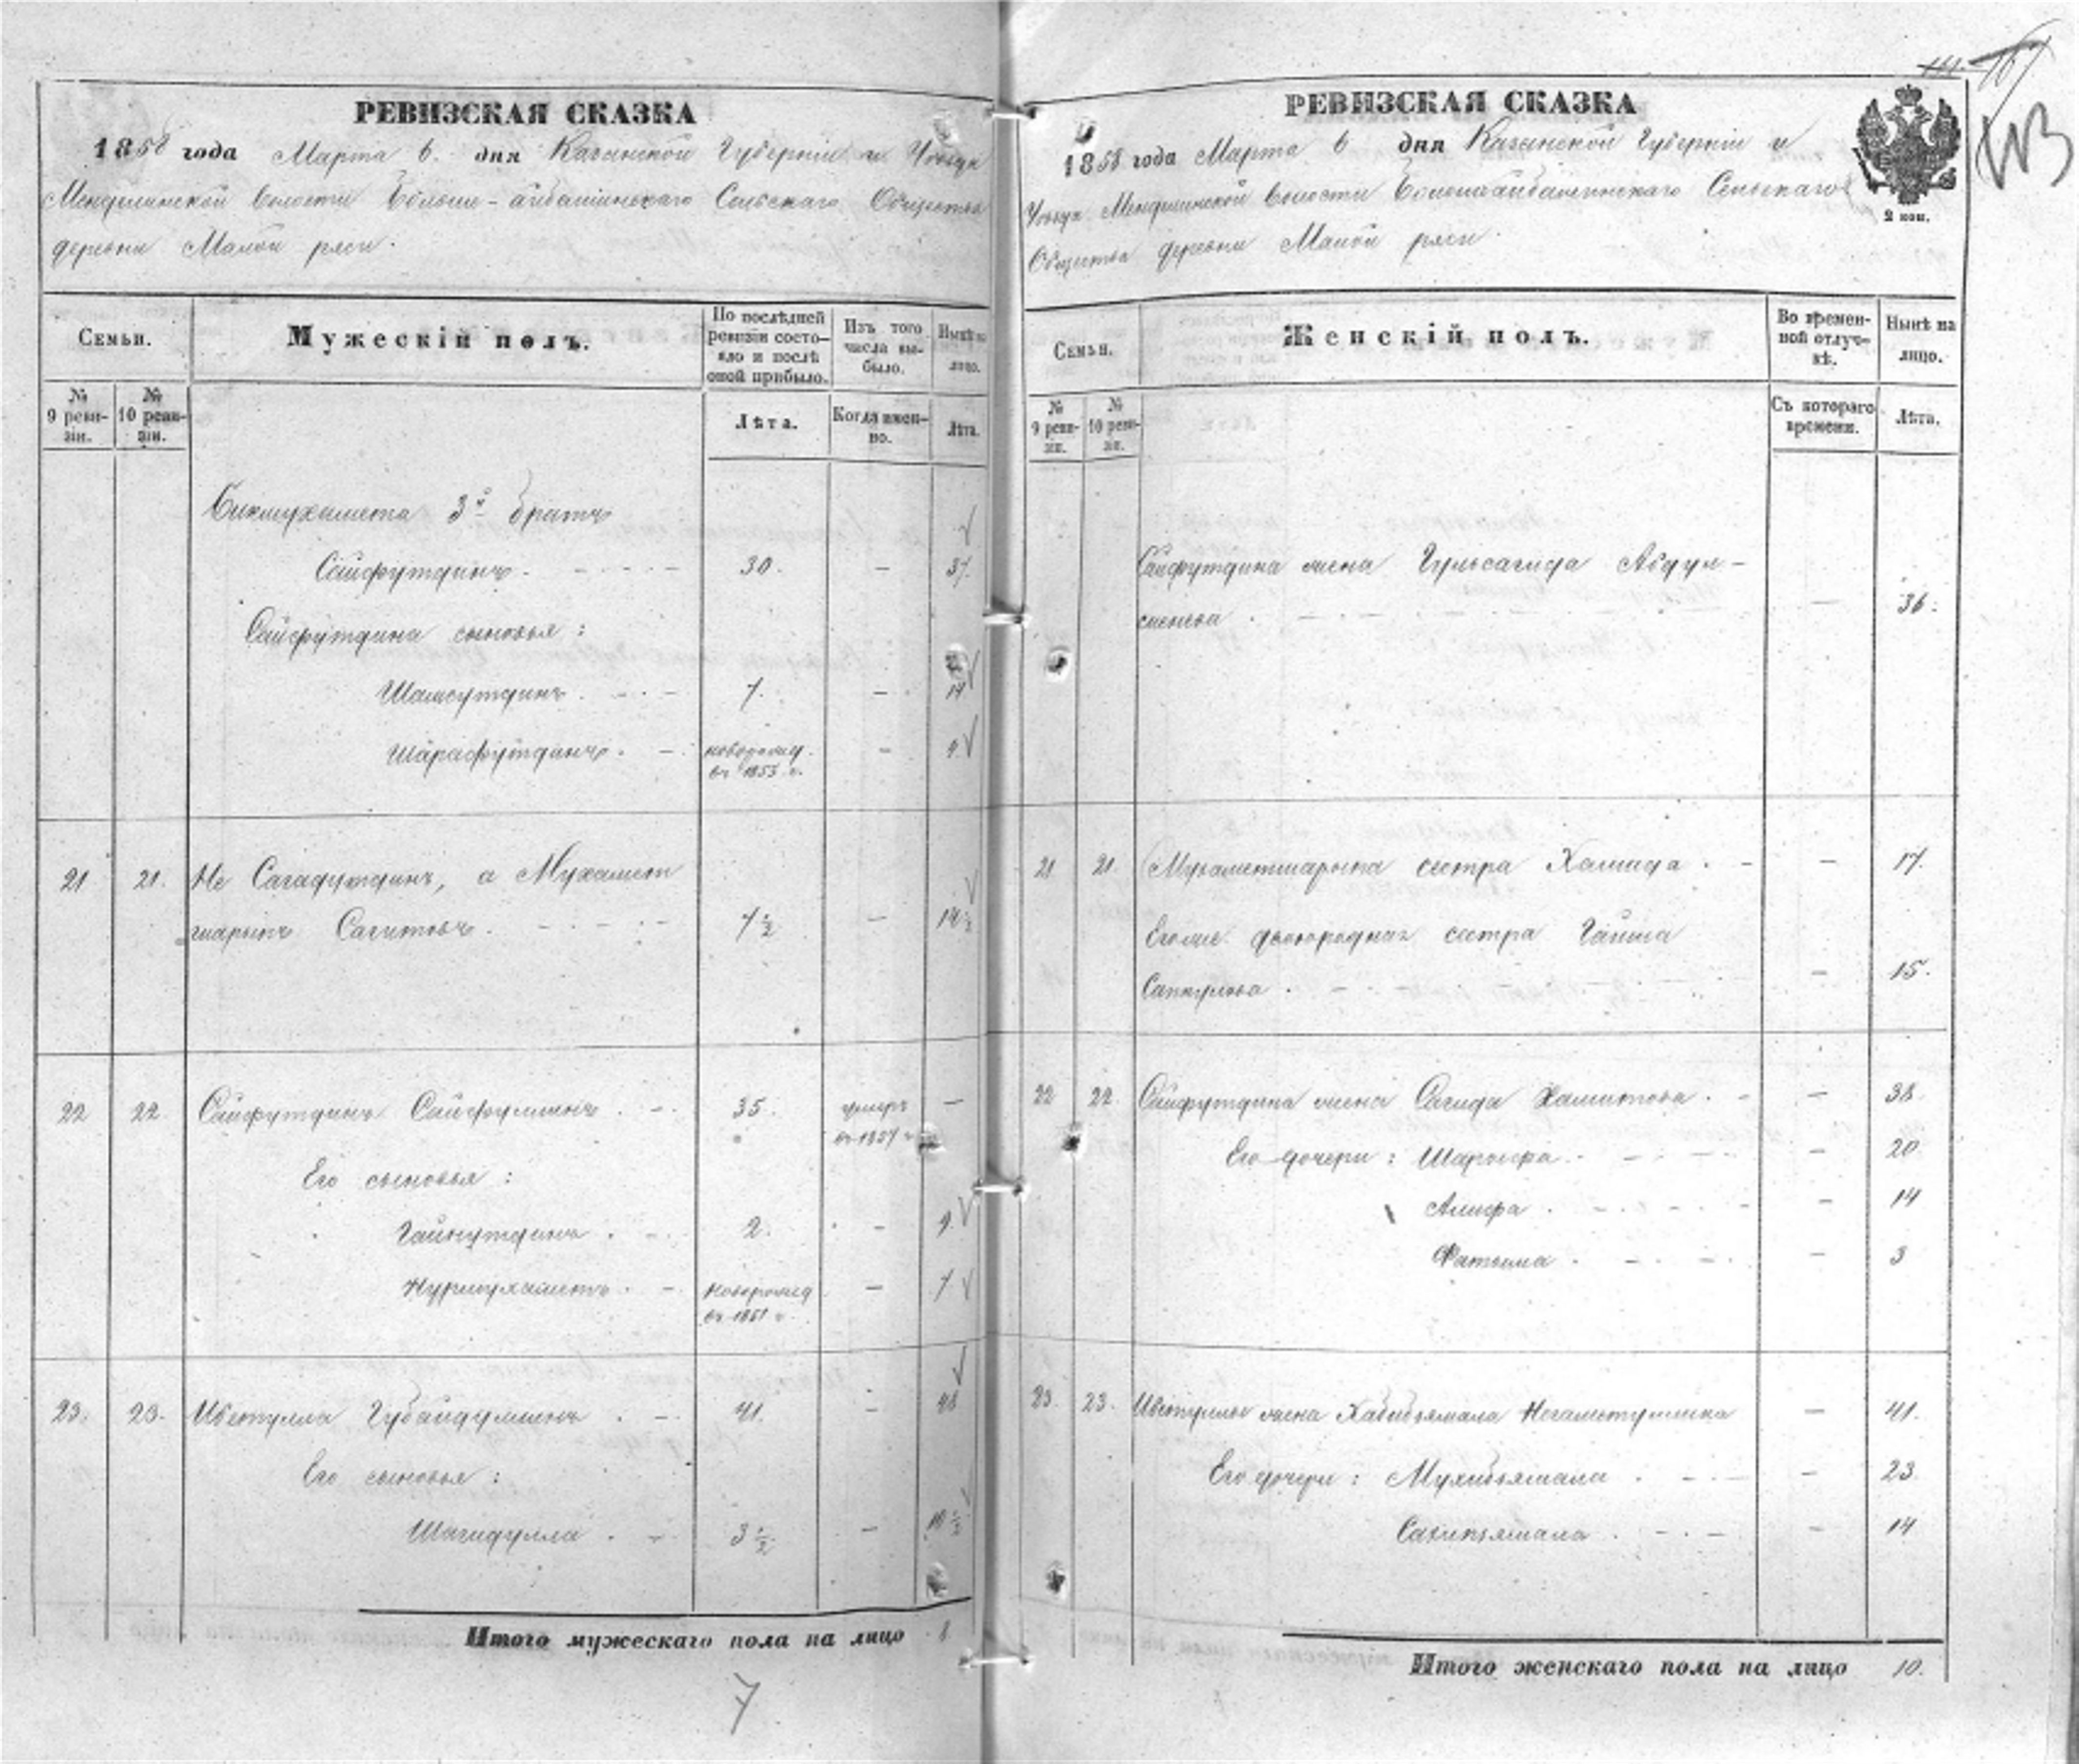 РЕВИЗСКАЯ СКАЗКА
1858 года Марта 6. дня Казанской Губерніи и Уѣзда
Менделинской волости Больше-айбашинскаго Сельскаго Общества
деревни Малой ряси.
Семьи.
Мужескій полъ.
По послѣдней ревизіи состояло и послѣ оной прибыло.
Изъ того числа выбыло.
Нынѣ на лицо.
№ 9 ревизіи.
№ 10 ревизіи.
Лѣта.
Когда именно.
Лѣта.
Бикмухамета 3й братъ
Сайфутдинъ. 30. — 37.
Сайфутдина сыновья:
Шамсутдинъ. 7. — 14
Шарафутдинъ. новорожд. въ 1853 г. —
21 21. Не Сагадутдинъ, а Мухамет
шарыпъ Сагитовъ. 7½ — 14½
22 22 Сайфутдинъ Сайфуллинъ. 35. умеръ въ 1857 г —
Его сыновья:
Гайнутдинъ. 2. — 9.
Нурмухаметъ. новорожд въ 1851 г. — 7
23. 23. Ибетулла Губайдуллинъ. 41. — 48
Его сыновья:
Шагидулла. 3½ — 10½
Итого мужескаго пола на лицо 8
7
167
113
РЕВИЗСКАЯ СКАЗКА
1858 года Марта 6 дня Казанской Губерніи и
Уѣзда Менделинской волости Большеайбашинскаго Сельскаго
Общества деревни Малой ряси.
2 коп.
Семьи.
Женскій полъ.
Во временной отлучкѣ.
Нынѣ на лицо.
№ 9 ревизіи.
№ 10 ревизіи.
Съ котораго времени.
Лѣта.
Сайфутдина жена Гульсагида Абдул-
— 36.
21 21 Мухаметшарыпа сестра Хамида. — 17.
Его же двоюродная сестра Гайша
— 15.
22 22. Сайфутдина жена Сагида Хамитова. — 38.
Его дочери: Шарыфа. — 20.
Алифа. — 14
Фатыма. — 3
23. 23. Ибетуллы жена Хабибзямала — 41.
Его дочери: Мухибзямала. — 23.
Сахипзямала. — 14
Итого женскаго пола на лицо 10.